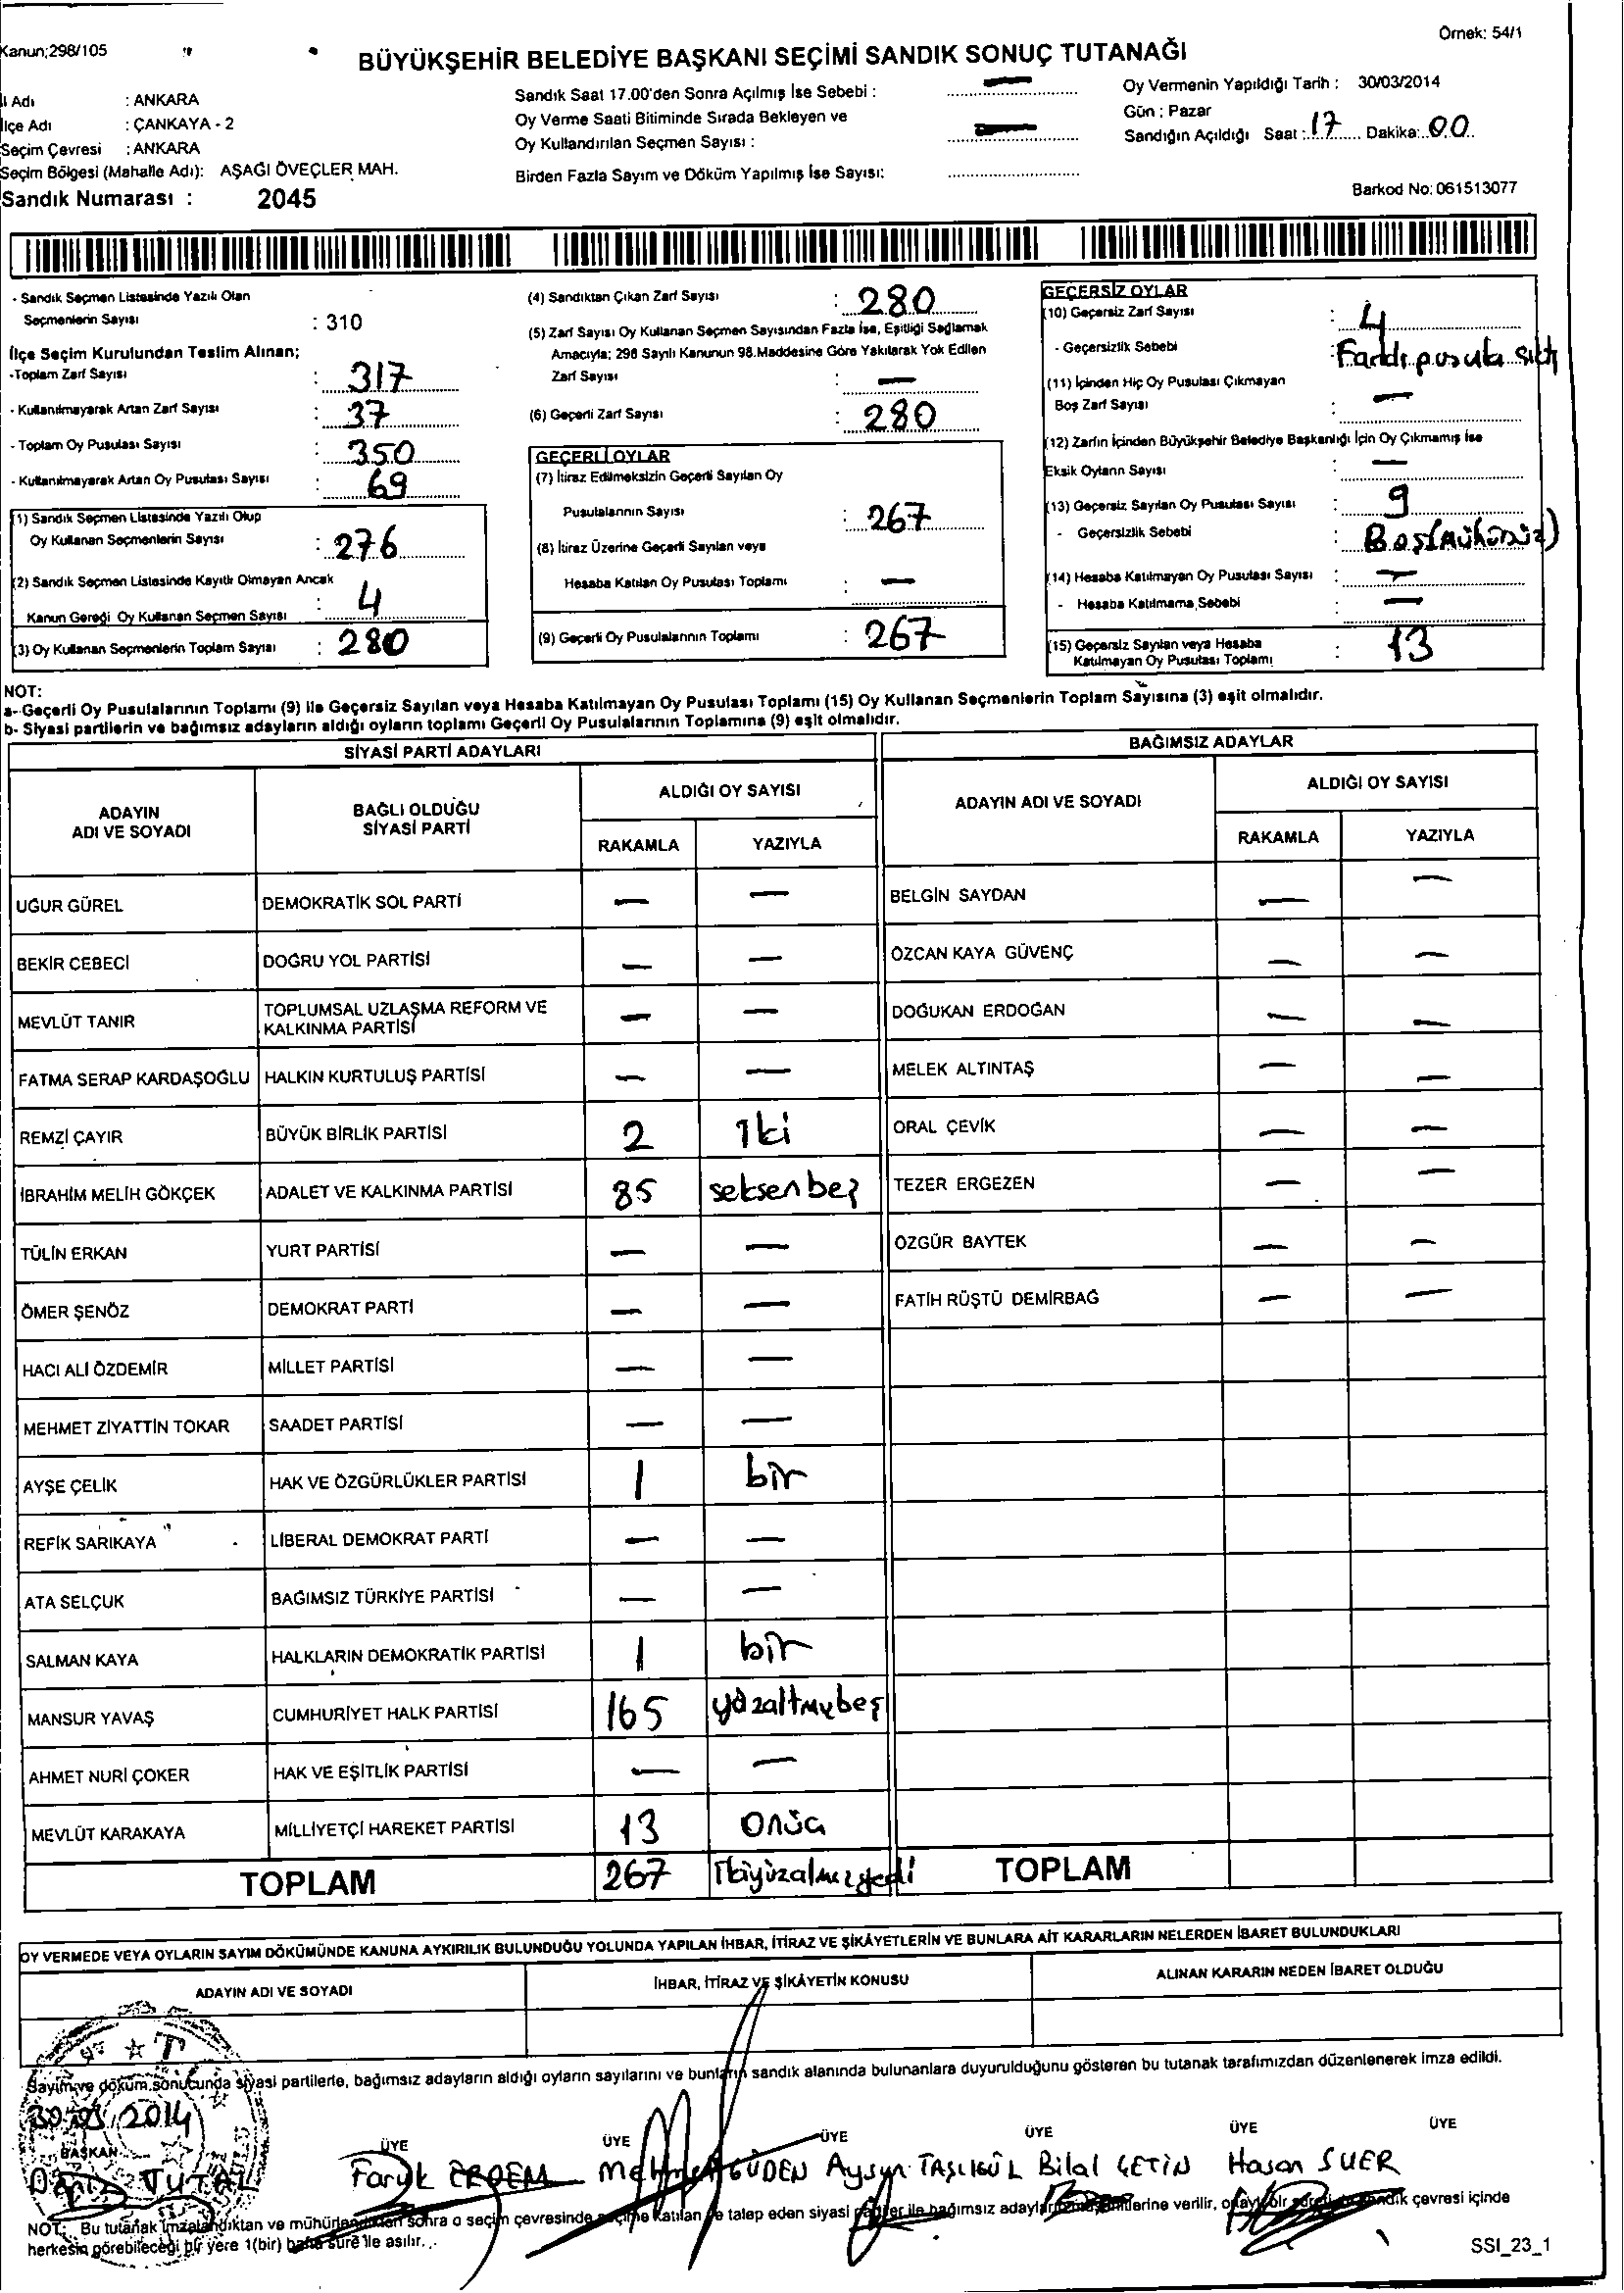 Kanun;298/105
Örnek: 54/1
BÜYÜKŞEHİR BELEDİYE BAŞKANI SEÇİMİ SANDIK SONUÇ TUTANAĞI
İl Adı : ANKARA
İlçe Adı : ÇANKAYA - 2
Seçim Çevresi : ANKARA
Seçim Bölgesi (Mahalle Adı): AŞAĞI ÖVEÇLER MAH.
Sandık Numarası : 2045
Sandık Saat 17.00'den Sonra Açılmış İse Sebebi : —
Oy Verme Saati Bitiminde Sırada Bekleyen ve
Oy Kullandırılan Seçmen Sayısı : —
Birden Fazla Sayım ve Döküm Yapılmış İse Sayısı:
Oy Vermenin Yapıldığı Tarih : 30/03/2014
Gün : Pazar
Sandığın Açıldığı Saat : 17 Dakika: 00
Barkod No: 061513077
- Sandık Seçmen Listesinde Yazılı Olan
Seçmenlerin Sayısı : 310
İlçe Seçim Kurulundan Teslim Alınan;
-Toplam Zarf Sayısı : 317
- Kullanılmayarak Artan Zarf Sayısı : 37
- Toplam Oy Pusulası Sayısı : 350
- Kullanılmayarak Artan Oy Pusulası Sayısı : 69
(1) Sandık Seçmen Listesinde Yazılı Olup
Oy Kullanan Seçmenlerin Sayısı : 276
(2) Sandık Seçmen Listesinde Kayıtlı Olmayan Ancak
Kanun Gereği Oy Kullanan Seçmen Sayısı : 4
(3) Oy Kullanan Seçmenlerin Toplam Sayısı : 280
(4) Sandıktan Çıkan Zarf Sayısı : 280
(5) Zarf Sayısı Oy Kullanan Seçmen Sayısından Fazla İse, Eşitliği Sağlamak
Amacıyla; 298 Sayılı Kanunun 98.Maddesine Göre Yakılarak Yok Edilen
Zarf Sayısı : —
(6) Geçerli Zarf Sayısı : 280
GEÇERLİ OYLAR
(7) İtiraz Edilmeksizin Geçerli Sayılan Oy
Pusulalarının Sayısı : 267
(8) İtiraz Üzerine Geçerli Sayılan veya
Hesaba Katılan Oy Pusulası Toplamı : —
(9) Geçerli Oy Pusulalarının Toplamı : 267
GEÇERSİZ OYLAR
(10) Geçersiz Zarf Sayısı : 4
- Geçersizlik Sebebi : Farklı pusula
(11) İçinden Hiç Oy Pusulası Çıkmayan
Boş Zarf Sayısı : —
(12) Zarfın İçinden Büyükşehir Belediye Başkanlığı İçin Oy Çıkmamış İse
Eksik Oyların Sayısı : —
(13) Geçersiz Sayılan Oy Pusulası Sayısı : 9
- Geçersizlik Sebebi : Boş(mühürsüz)
(14) Hesaba Katılmayan Oy Pusulası Sayısı : —
- Hesaba Katılmama Sebebi : —
(15) Geçersiz Sayılan veya Hesaba
Katılmayan Oy Pusulası Toplamı : 13
NOT:
a- Geçerli Oy Pusulalarının Toplamı (9) ile Geçersiz Sayılan veya Hesaba Katılmayan Oy Pusulası Toplamı (15) Oy Kullanan Seçmenlerin Toplam Sayısına (3) eşit olmalıdır.
b- Siyasi partilerin ve bağımsız adayların aldığı oyların toplamı Geçerli Oy Pusulalarının Toplamına (9) eşit olmalıdır.
SİYASİ PARTİ ADAYLARI
ADAYIN ADI VE SOYADI BAĞLI OLDUĞU SİYASİ PARTİ ALDIĞI OY SAYISI
RAKAMLA YAZIYLA
UĞUR GÜREL DEMOKRATİK SOL PARTİ — —
BEKİR CEBECİ DOĞRU YOL PARTİSİ — —
MEVLÜT TANIR TOPLUMSAL UZLAŞMA REFORM VE KALKINMA PARTİSİ — —
FATMA SERAP KARDAŞOĞLU HALKIN KURTULUŞ PARTİSİ — —
REMZİ ÇAYIR BÜYÜK BİRLİK PARTİSİ 2 İki
İBRAHİM MELİH GÖKÇEK ADALET VE KALKINMA PARTİSİ 85 seksenbeş
TÜLİN ERKAN YURT PARTİSİ — —
ÖMER ŞENÖZ DEMOKRAT PARTİ — —
HACI ALİ ÖZDEMİR MİLLET PARTİSİ — —
MEHMET ZİYATTİN TOKAR SAADET PARTİSİ — —
AYŞE ÇELİK HAK VE ÖZGÜRLÜKLER PARTİSİ 1 bir
REFİK SARIKAYA LİBERAL DEMOKRAT PARTİ — —
ATA SELÇUK BAĞIMSIZ TÜRKİYE PARTİSİ — —
SALMAN KAYA HALKLARIN DEMOKRATİK PARTİSİ 1 bir
MANSUR YAVAŞ CUMHURİYET HALK PARTİSİ 165 yüzaltmışbeş
AHMET NURİ ÇOKER HAK VE EŞİTLİK PARTİSİ — —
MEVLÜT KARAKAYA MİLLİYETÇİ HAREKET PARTİSİ 13 Onüç
TOPLAM 267 İkiyüzaltmışyedi
BAĞIMSIZ ADAYLAR
ADAYIN ADI VE SOYADI ALDIĞI OY SAYISI
RAKAMLA YAZIYLA
BELGİN SAYDAN — —
ÖZCAN KAYA GÜVENÇ — —
DOĞUKAN ERDOĞAN — —
MELEK ALTINTAŞ — —
ORAL ÇEVİK — —
TEZER ERGEZEN — —
ÖZGÜR BAYTEK — —
FATİH RÜŞTÜ DEMİRBAĞ — —
TOPLAM
OY VERMEDE VEYA OYLARIN SAYIM DÖKÜMÜNDE KANUNA AYKIRILIK BULUNDUĞU YOLUNDA YAPILAN İHBAR, İTİRAZ VE ŞİKÂYETLERİN VE BUNLARA AİT KARARLARIN NELERDEN İBARET BULUNDUKLARI
ADAYIN ADI VE SOYADI İHBAR, İTİRAZ VE ŞİKÂYETİN KONUSU ALINAN KARARIN NEDEN İBARET OLDUĞU
Sayım ve döküm sonucunda siyasi partilerle, bağımsız adayların aldığı oyların sayılarını ve bunların sandık alanında bulunanlara duyurulduğunu gösteren bu tutanak tarafımızdan düzenlenerek imza edildi.
30.03.2014
BAŞKAN ÜYE ÜYE ÜYE ÜYE ÜYE ÜYE
Deniz TUTAL Faruk ERDEM Mehmet GÜDEN Aysun TAŞLIGÜL Bilal ÇETİN Hasan SUER
NOT: Bu tutanak imzalandıktan ve mühürlendikten sonra o seçim çevresinde seçime katılan ve talep eden siyasi partiler ile bağımsız verilir, sandık çevresi içinde
herkesin görebileceği bir yere 1(bir) hafta süre ile asılır.
SSI_23_1